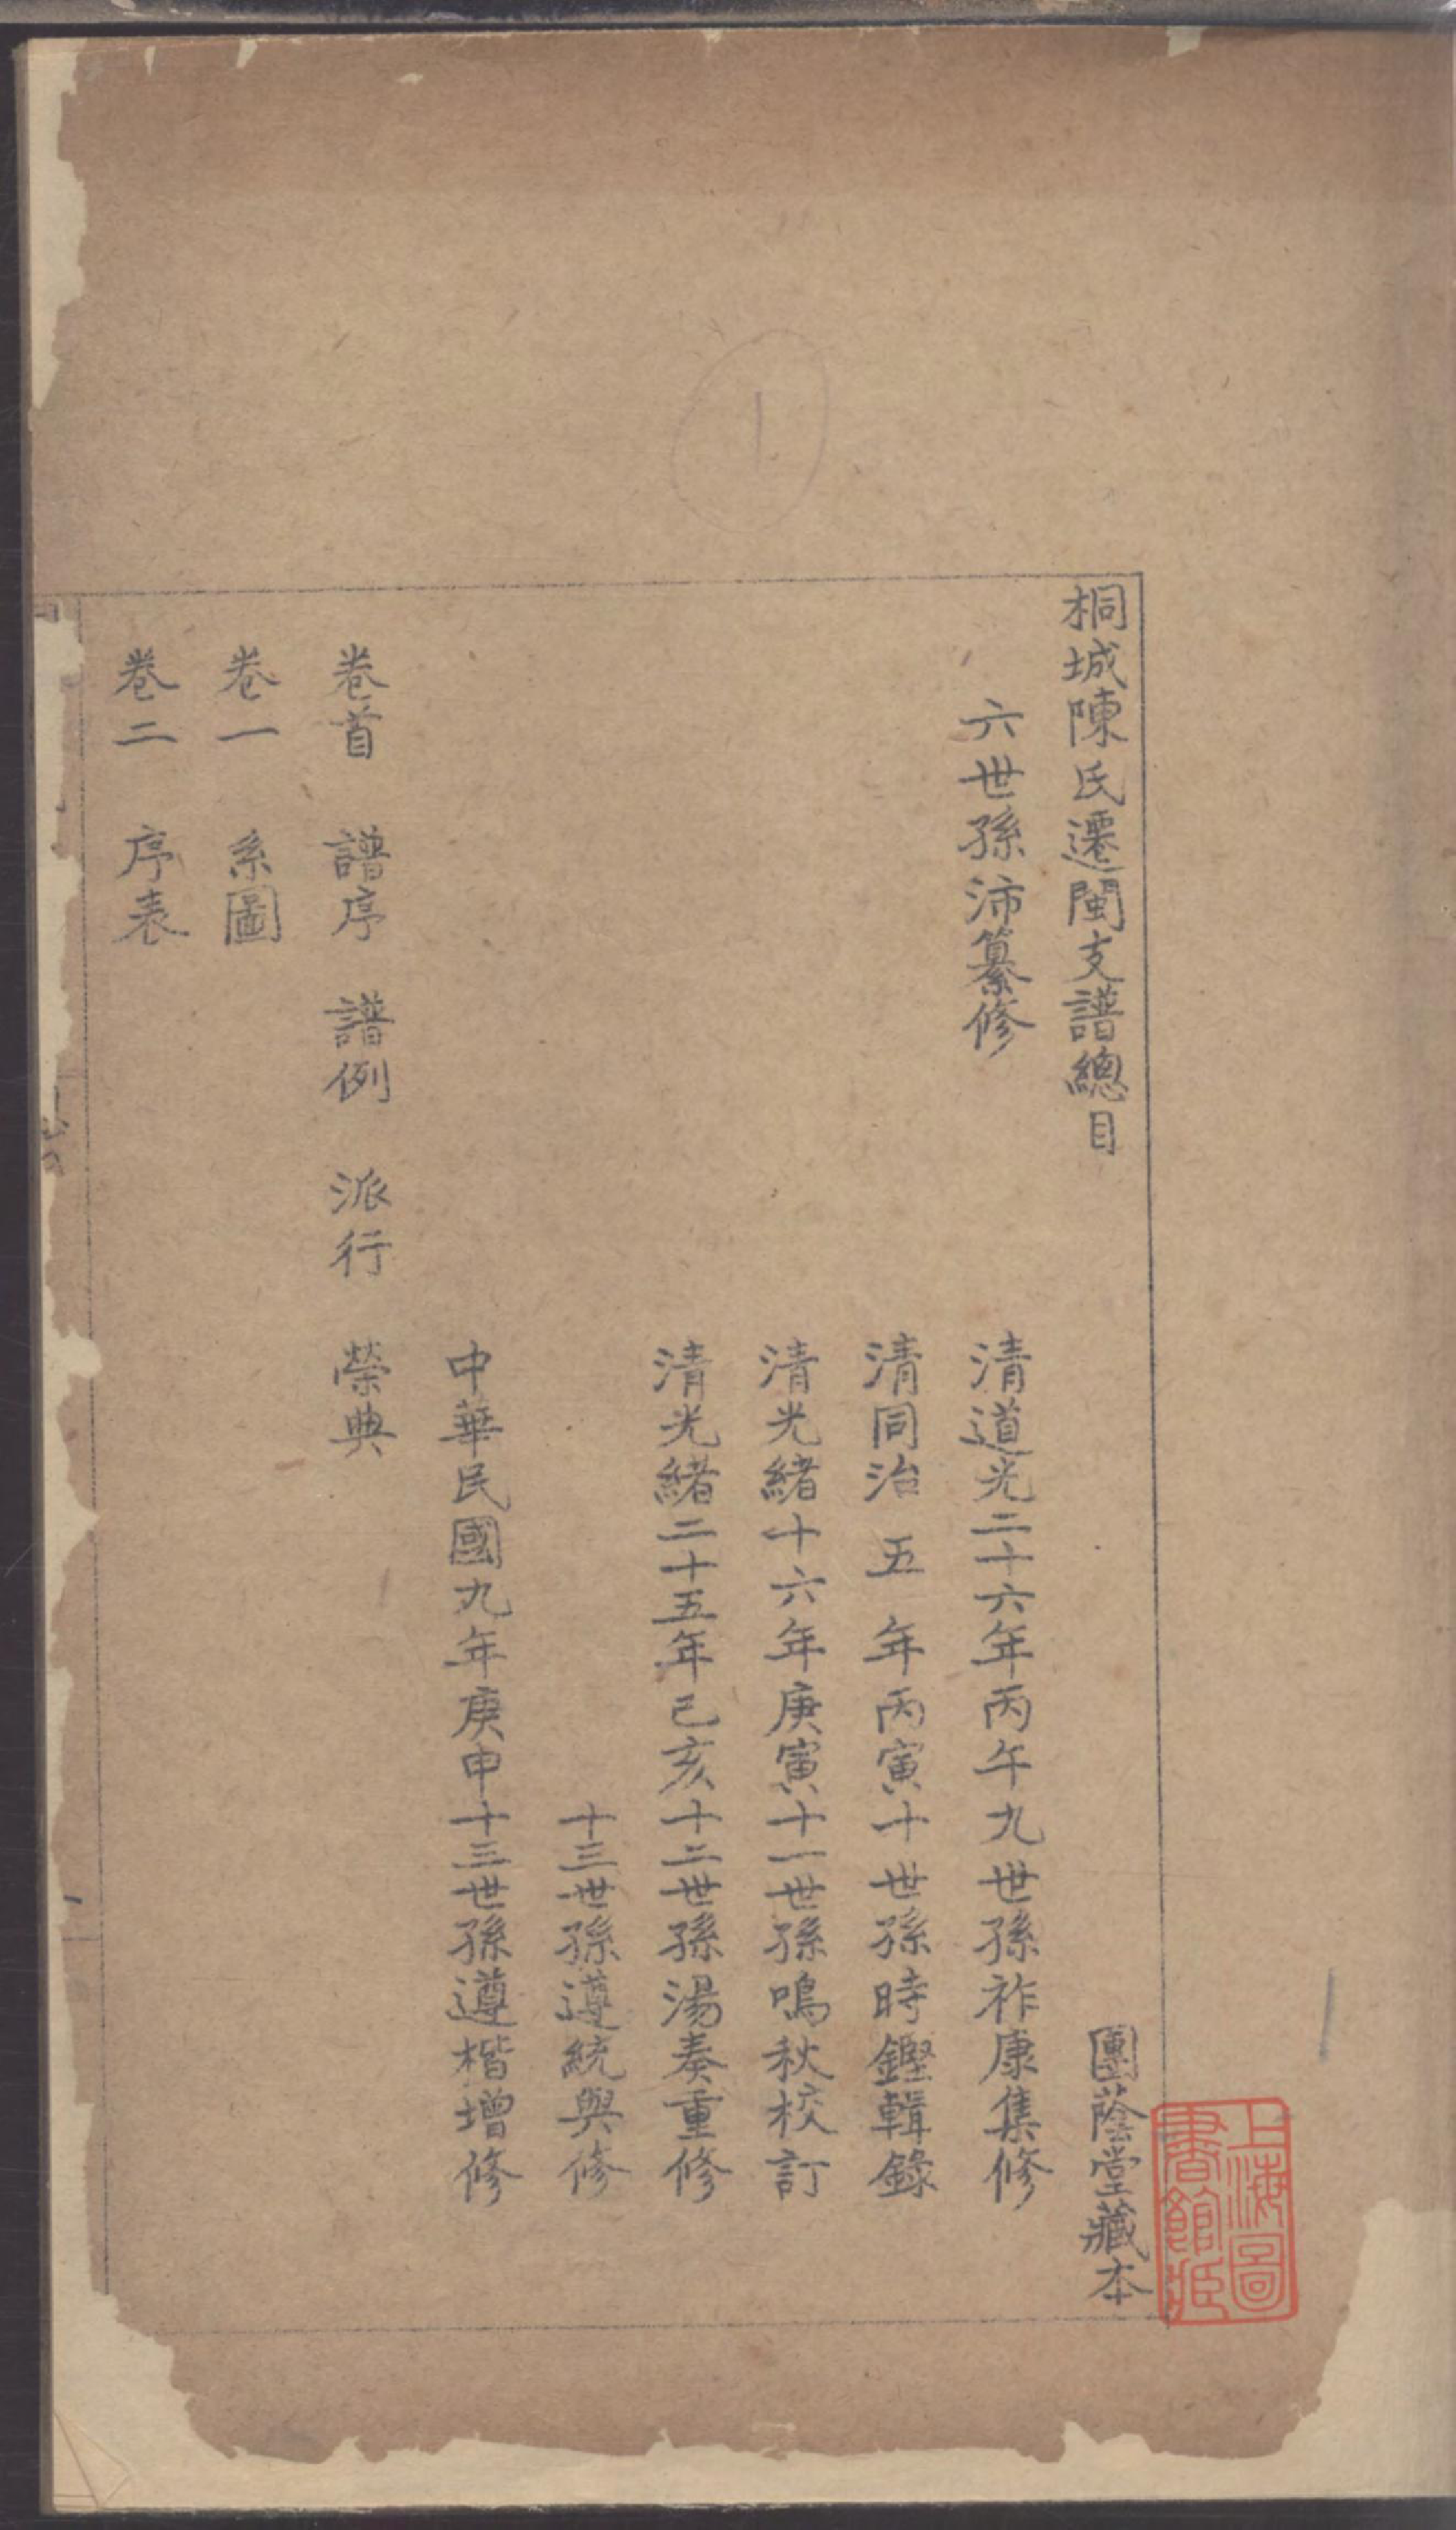 桐城陳氏遷閩支譜總目 團蔭堂藏本
六世孫沛纂修 清道光二十六年丙午九世孫祚康集修
清同治五年丙寅十世孫時鏗輯錄
清光緒十六年庚寅十一世孫鳴秋校訂
清光緒二十五年己亥十二世孫湯奏重修
十三世孫遵統與修
中華民國九年庚申十三世孫遵楷增修
卷首 譜序 譜例 派行 榮典
卷一 系圖
卷二 序表
上海圖書館藏
1